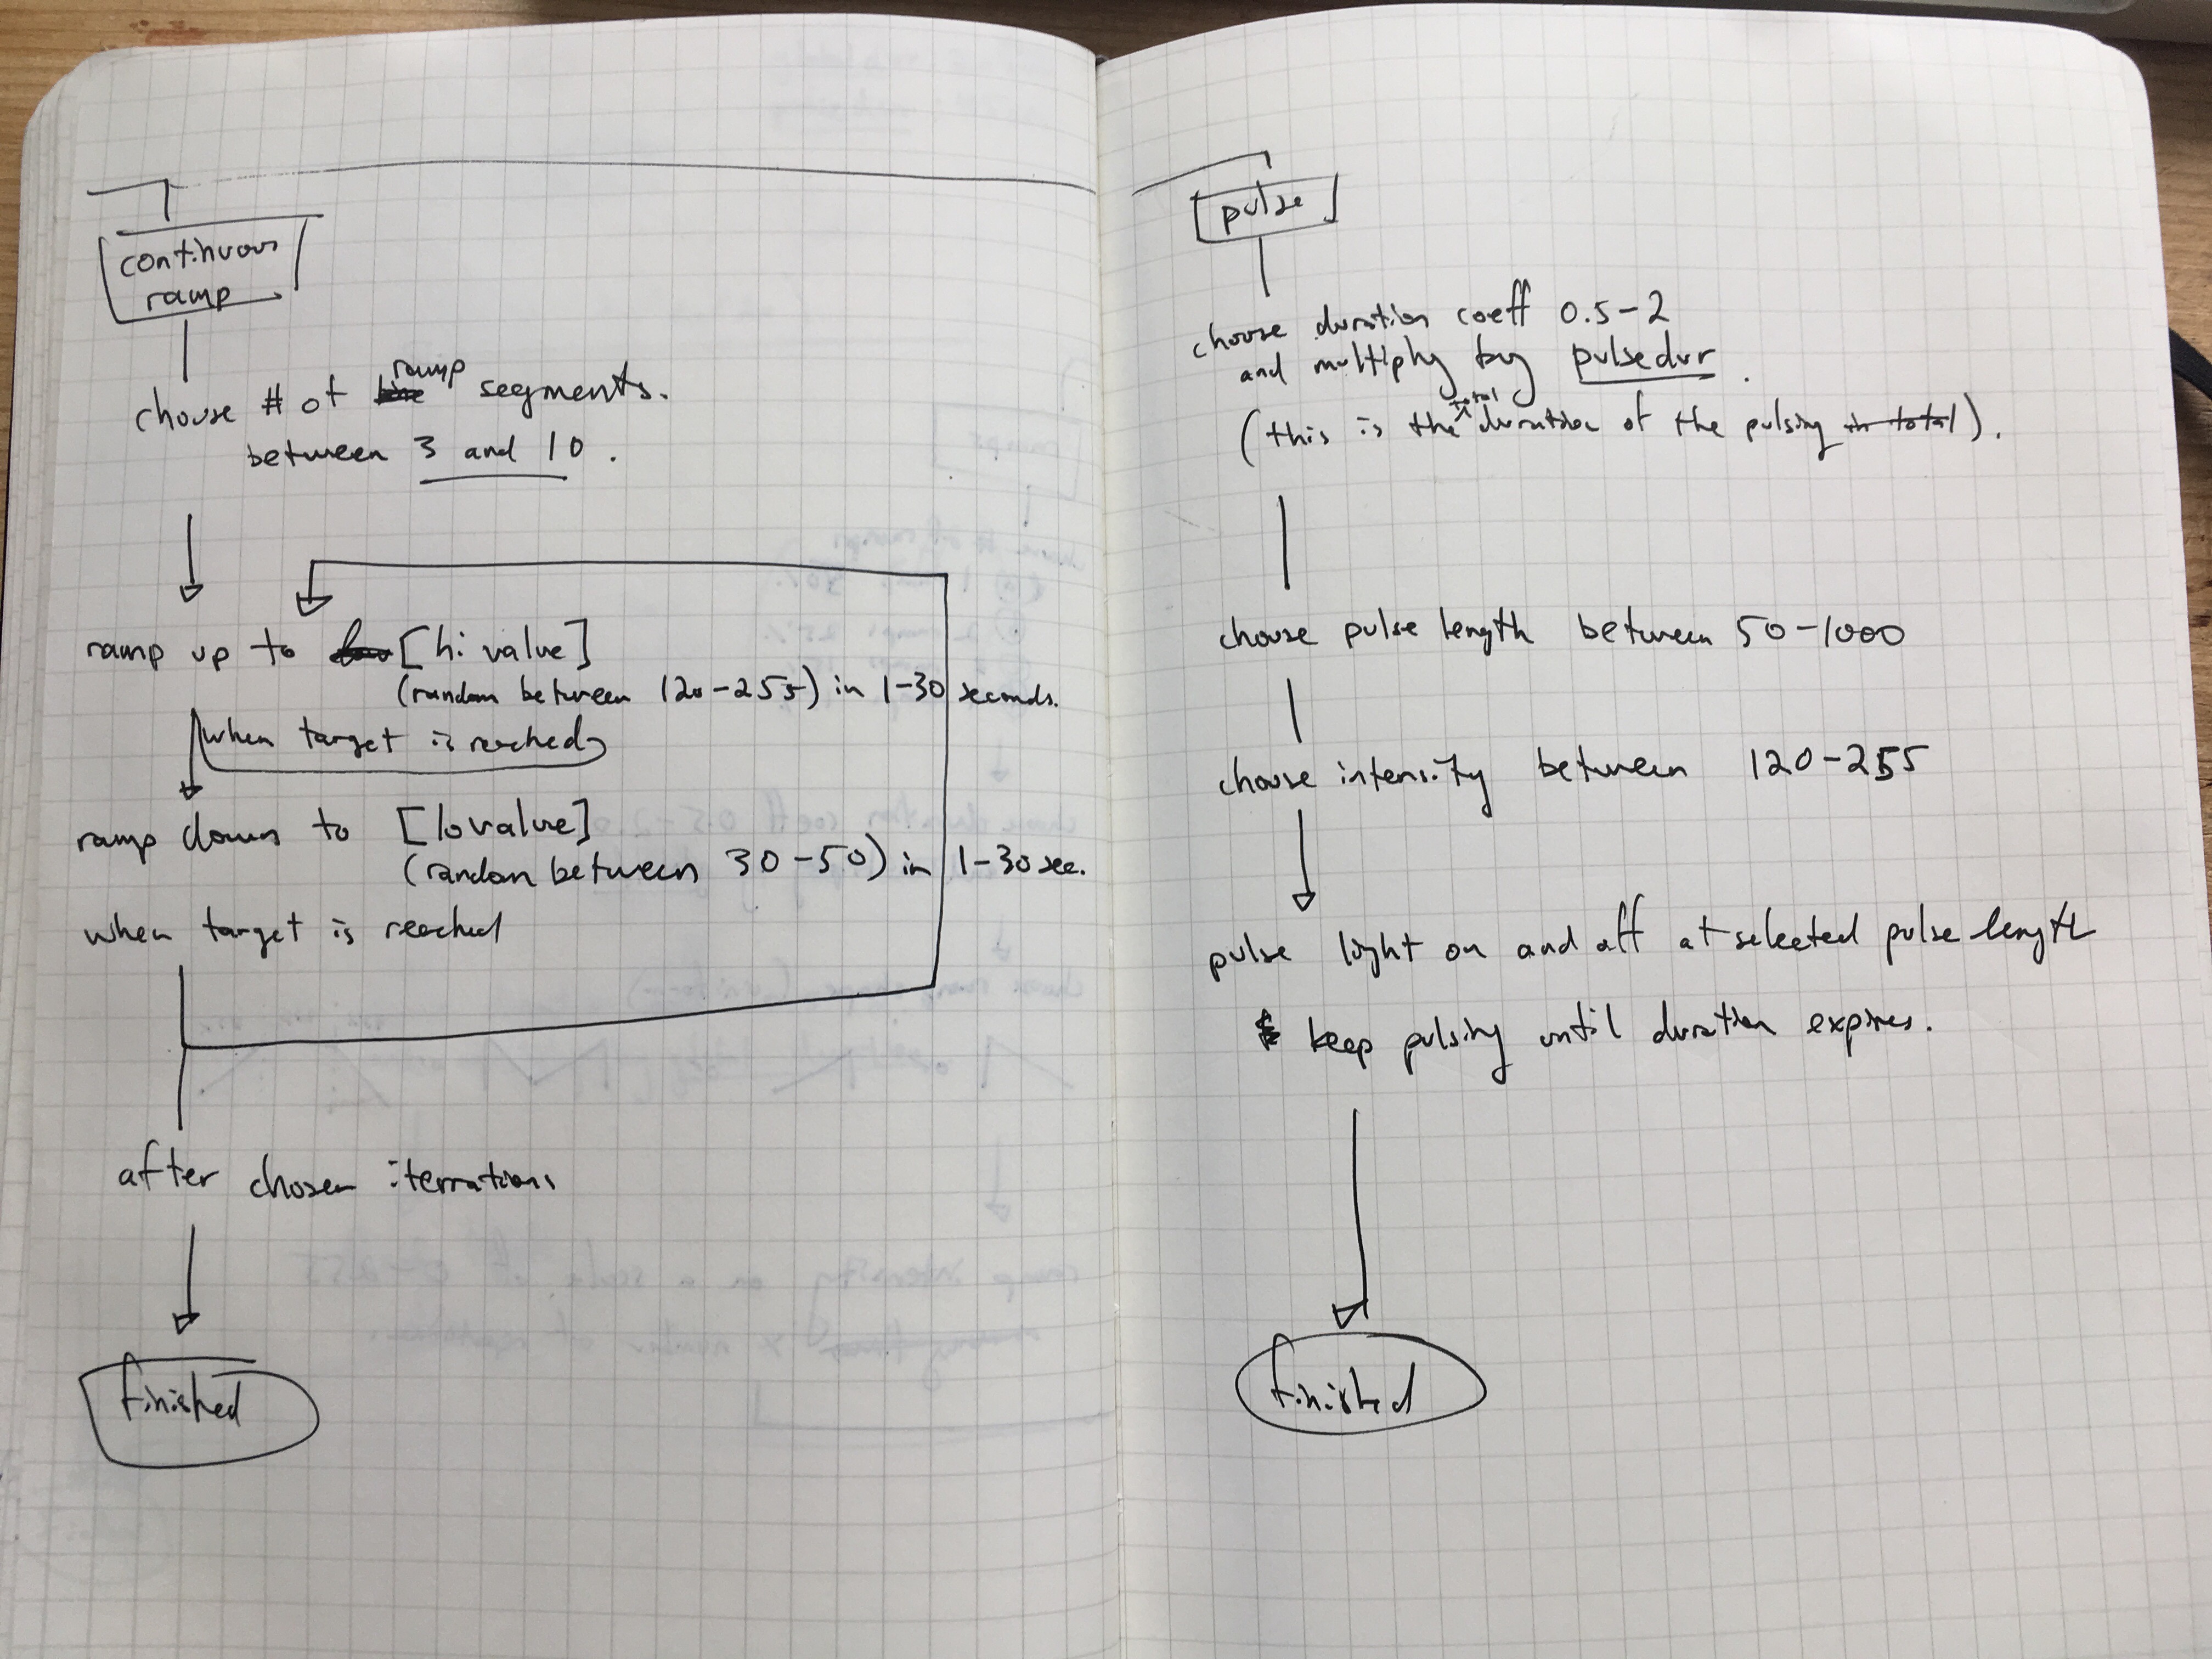 continuous
ramp
choose # of ramp segments.
between 3 and 10.
ramp up to [hi value]
(random between 120-255) in 1-30 seconds.
when target is reached
ramp down to [lovalue]
(random between 30-50) in 1-30 sec.
when target is reached
after chosen iterrations
finished
pulse
choose duration coeff 0.5-2
and multiply by pulsedur.
(this is the total duration of the pulsing in total).
choose pulse length between 50-1000
choose intensity between 120-255
pulse light on and off at selected pulse length
keep pulsing until duration expires.
finished